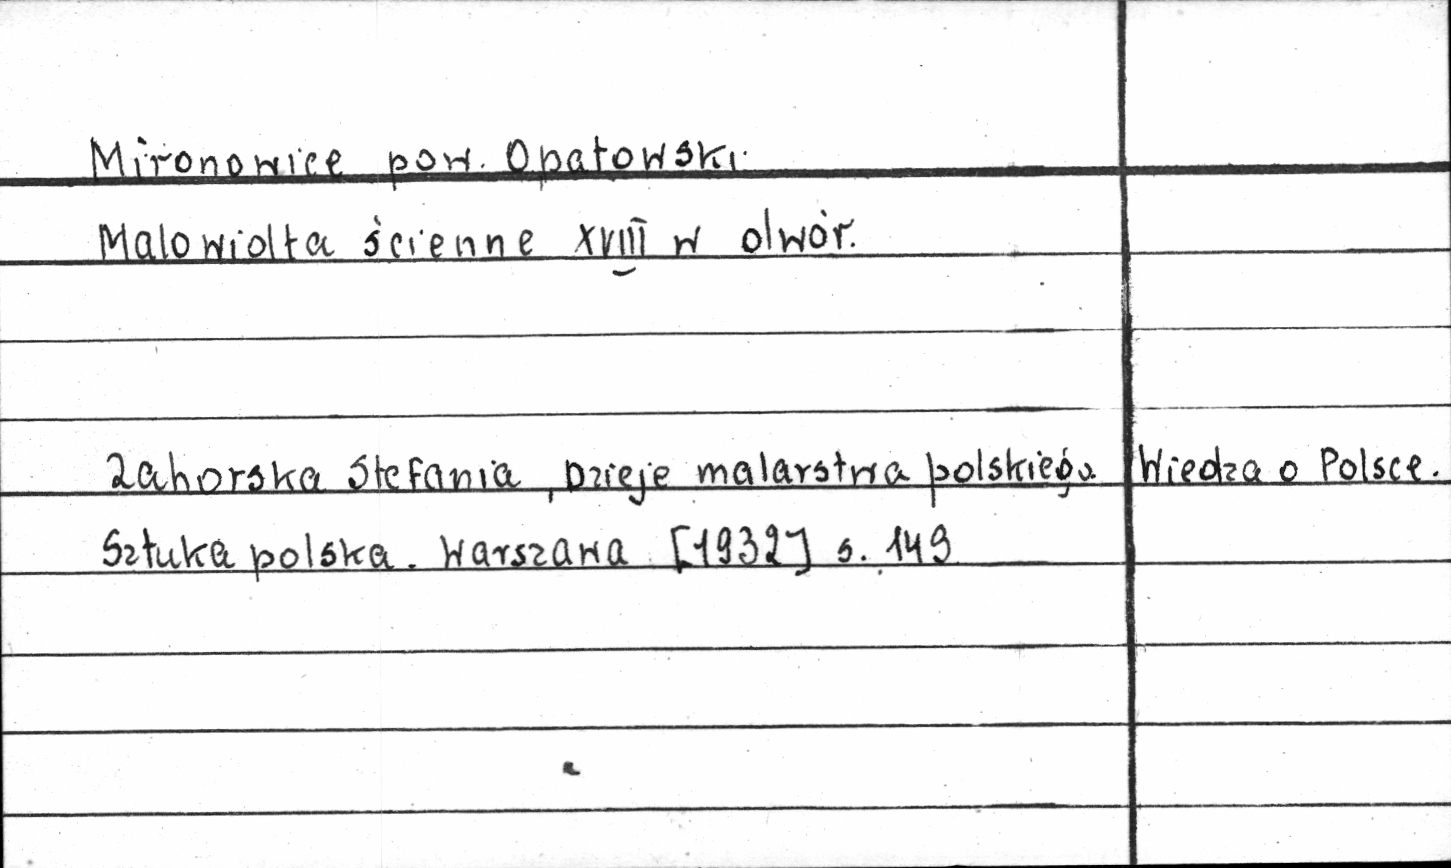 Mironowice pow. Opatowski.
Malowidła ścienne XVIII w dwór.
Zahorska Stefania, Dzieje malarstwa polskiego. Wiedza o Polsce.
Sztuka polska. Warszawa [1932] s. 149